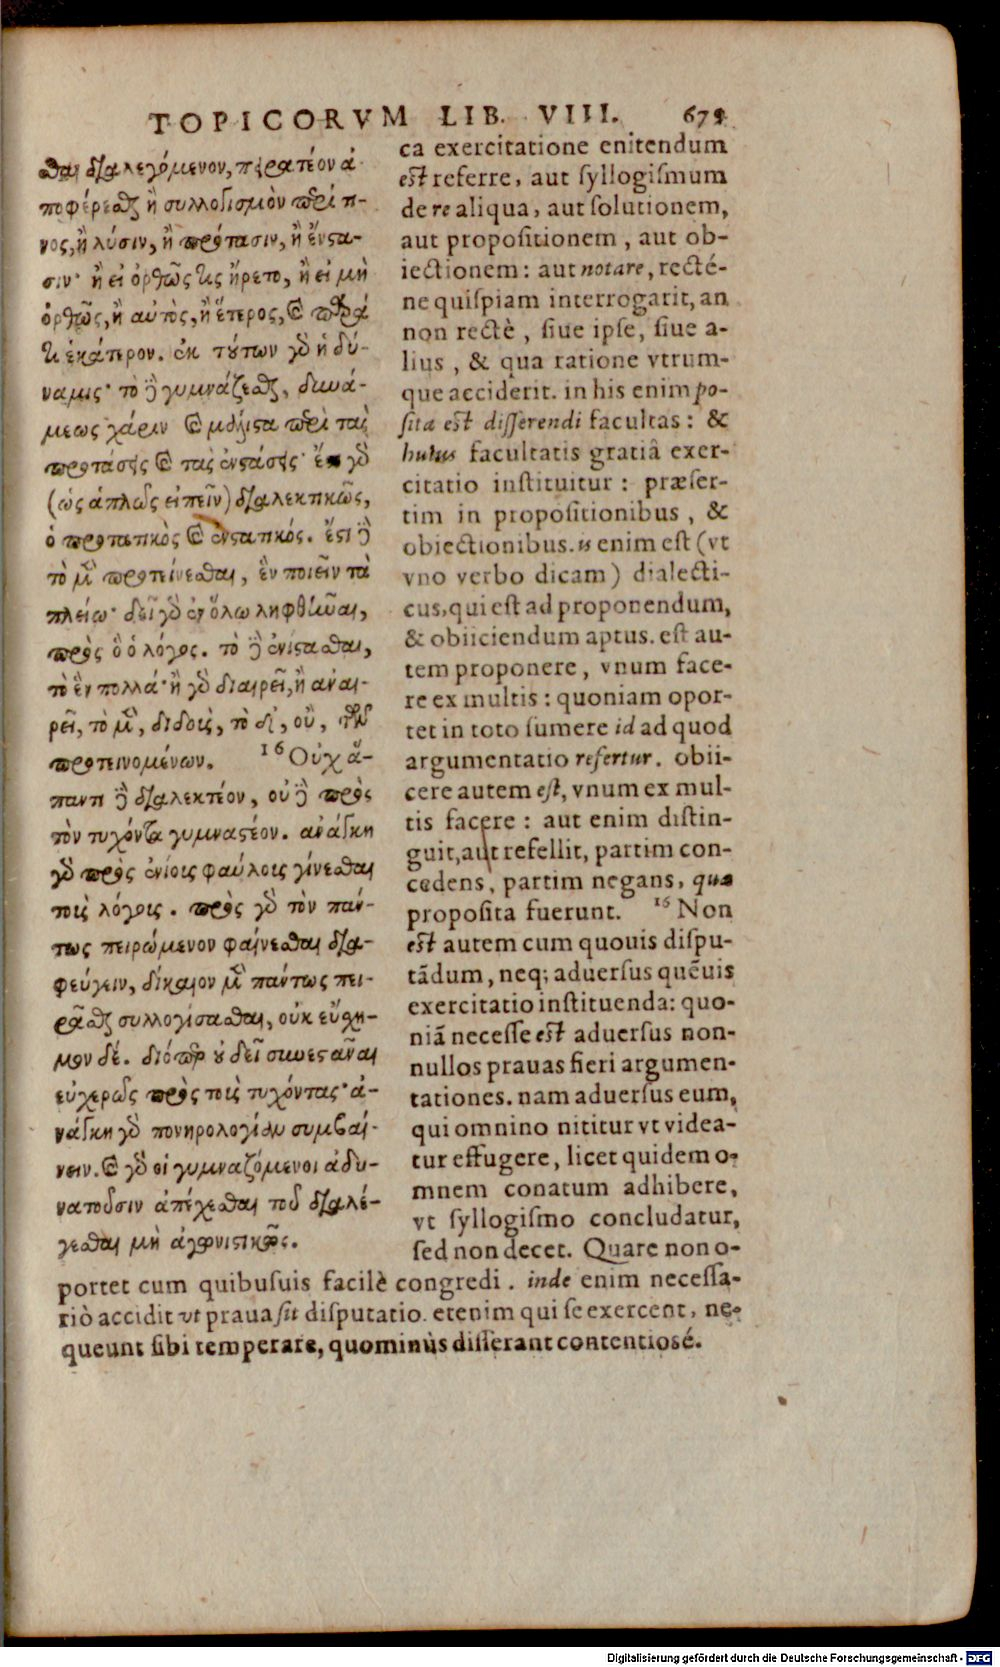 TOPICORVM LIB. VIII. 679
θαι διαλεγόμενον, πειρατέον ἀ-
ποφέρεσθαι ἢ συλλογισμὸν περί τι-
νος, ἢ λύσιν, ἢ πρότασιν, ἢ ἔνστα-
σιν· ἢ εἰ ὀρθῶς τις ἤρετο, ἢ εἰ μὴ
ὀρθῶς, ἢ αὐτὸς, ἢ ἕτερος, καὶ παρὰ
τί ἑκάτερον. ἐκ τούτων γὰρ ἡ δύ-
ναμις· τὸ δὲ γυμνάζεσθαι, δυνά-
μεως χάριν καὶ μάλιστα περὶ τὰς
προτάσεις καὶ τὰς ἐνστάσεις· ἔστι γὰρ
(ὡς ἁπλῶς εἰπεῖν) διαλεκτικῶς,
ὁ προτατικὸς καὶ ἐνστατικός. ἔστι δὲ
τὸ μὲν προτείνεσθαι, ἓν ποιεῖν τὰ
πλείω· δεῖ γὰρ ἐν ὅλῳ ληφθῆναι,
πρὸς ὃ ὁ λόγος. τὸ δὲ ἐνίστασθαι,
τὸ ἓν πολλά· ἢ γὰρ διαιρεῖ, ἢ ἀναι-
ρεῖ, τὸ μὲν, διδοὺς, τὸ δὲ, οὒ, τῶν
προτεινομένων. 16 Οὐχ ἅ-
παντι δὲ διαλεκτέον, οὐδὲ πρὸς
τὸν τυχόντα γυμναστέον. ἀνάγκη
γὰρ πρὸς ἐνίοις φαύλοις γίνεσθαι
τοὺς λόγοις. πρὸς γὰρ τὸν πάν-
τως πειρώμενον φαίνεσθαι δια-
φεύγειν, δίκαιον μὲν πάντως πει-
ρᾶσθαι συλλογίσασθαι, οὐκ εὔσχη-
μον δέ. διόπερ οὐ δεῖ συνεστάναι
εὐχερῶς πρὸς τοὺς τυχόντας· ἀ-
νάγκη γὰρ πονηρολογίαν συμβαί-
νειν. καὶ γὰρ οἱ γυμναζόμενοι ἀδυ-
νατοῦσιν ἀπέχεσθαι τοῦ διαλέ-
γεσθαι μὴ ἀγωνιστικῶς.
ca exercitatione enitendum
est referre, aut syllogismum
de re aliqua, aut solutionem,
aut propositionem, aut ob-
iectionem: aut notare, recté-
ne quispiam interrogarit, an
non rectè, siue ipse, siue a-
lius, & qua ratione vtrum-
que acciderit. in his enim po-
sita est disserendi facultas: &
huius facultatis gratiâ exer-
citatio instituitur: præser-
tim in propositionibus, &
obiectionibus. is enim est (vt
vno verbo dicam) dialecti-
cus, qui est ad proponendum,
& obiiciendum aptus. est au-
tem proponere, vnum face-
re ex multis: quoniam opor-
tet in toto sumere id ad quod
argumentatio refertur. obii-
cere autem est, vnum ex mul-
tis facere: aut enim distin-
guit, aut refellit, partim con-
cedens, partim negans, quæ
proposita fuerunt. 16 Non
est autem cum quouis dispu-
tādum, neq; aduersus quēuis
exercitatio instituenda: quo-
niā necesse est aduersus non-
nullos prauas fieri argumen-
tationes. nam aduersus eum,
qui omnino nititur vt videa-
tur effugere, licet quidem o-
mnem conatum adhibere,
vt syllogismo concludatur,
sed non decet. Quare non o-
portet cum quibusuis facilè congredi. inde enim necessa-
riò accidit vt praua sit disputatio. etenim qui se exercent, ne-
queunt sibi temperare, quominùs disserant contentiosé.
Digitalisierung gefördert durch die Deutsche Forschungsgemeinschaft - DFG